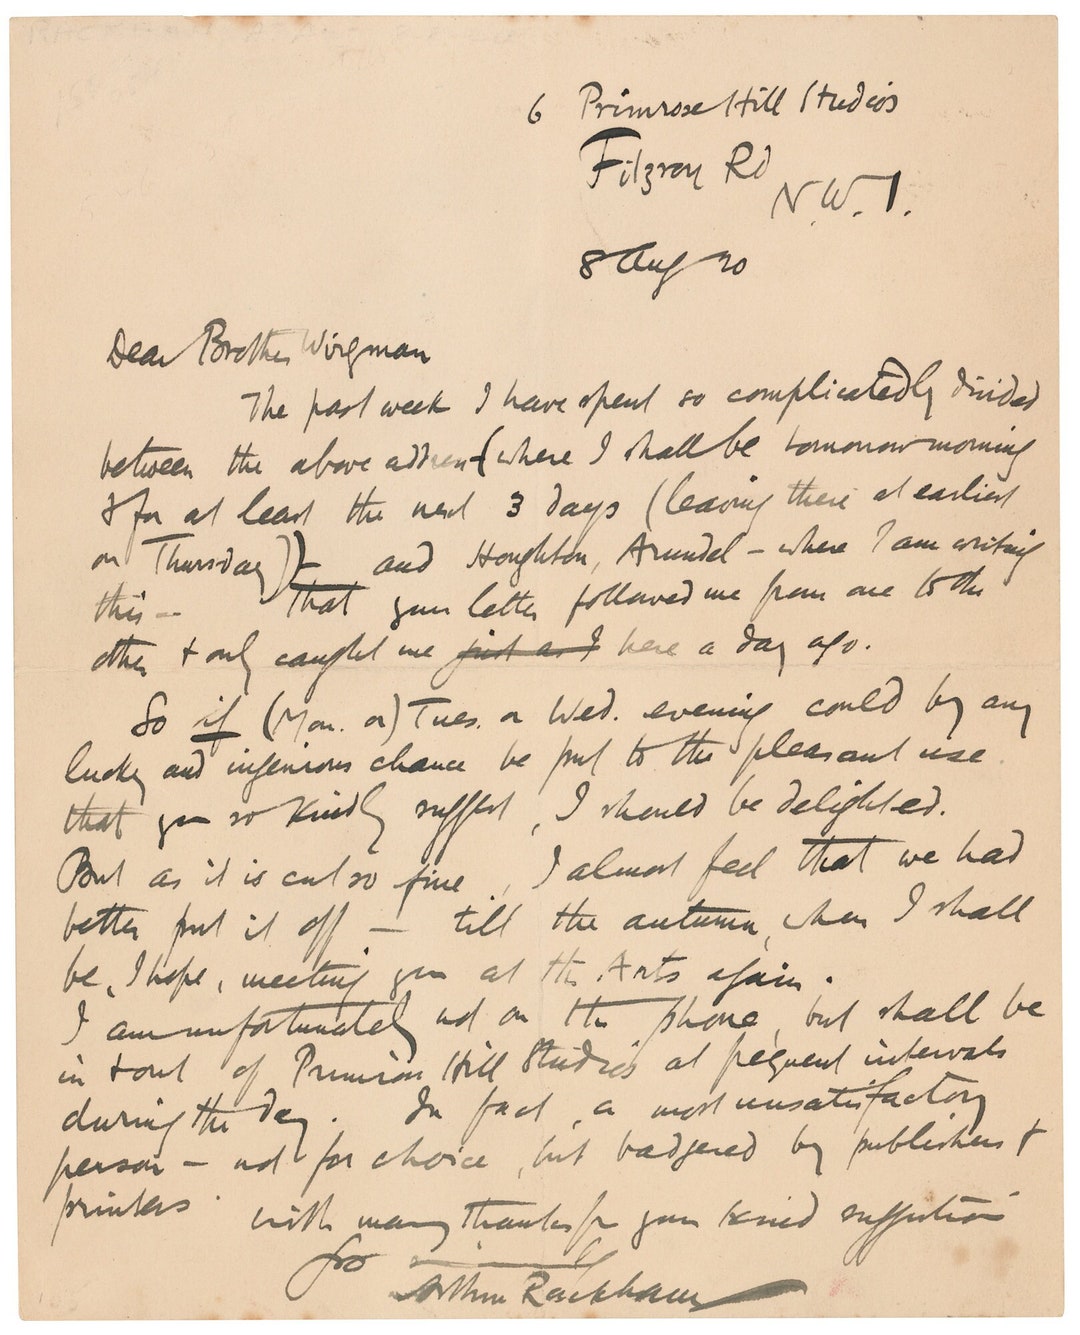 6 Primrose Hill Studios
Fitzroy Rd
N.W.1.
8 Aug 20
Dear Brother Wirgman
The past week I have spent so complicatedly divided
between the above address (where I shall be tomorrow morning
& for at least the next 3 days (leaving there at earliest
on Thursday)) - and Houghton, Arundel - where I am writing
this - that your letter followed me from one to the
other & only caught me just as I here a day ago.
So if (Mon. or) Tues. or Wed. evening could by any
lucky and ingenious chance be put to the pleasant use
that you so kindly suggest, I should be delighted.
But as it is cut so fine, I almost feel that we had
better put it off - till the autumn, when I shall
be, I hope, meeting you at the Arts again.
I am unfortunately not on the phone, but shall be
in & out of Primrose Hill Studios at frequent intervals
during the day. In fact, a most unsatisfactory
person - not for choice, but badgered by publishers &
printers.
with many thanks for your kind suggestion
Arthur Rackham